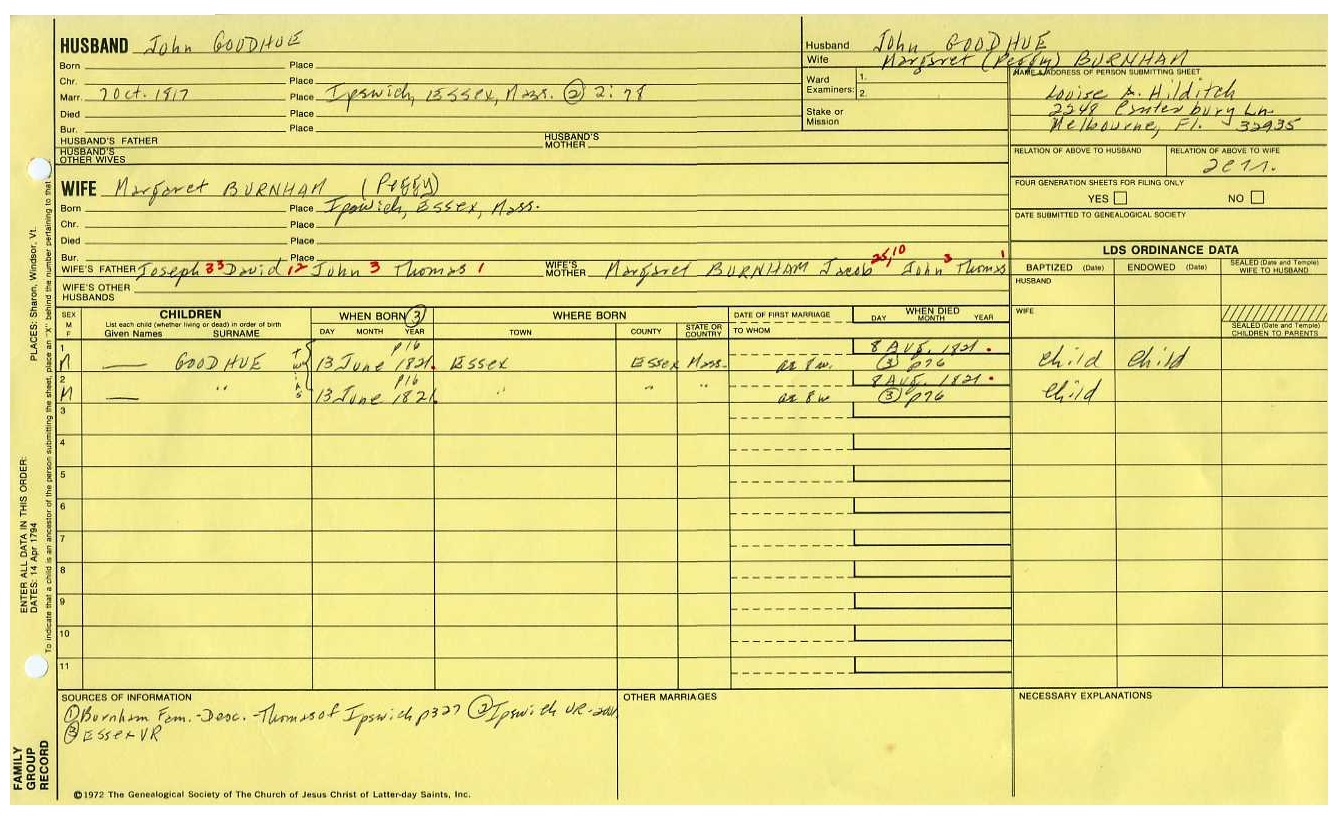 HUSBAND John GOODHUE
Born Place
Chr. Place
Marr. 7 Oct. 1817 Place Ipswich, Essex, Mass. ② 2:78
Died Place
Bur. Place
HUSBAND'S FATHER HUSBAND'S MOTHER
HUSBAND'S OTHER WIVES
Husband John GOODHUE
Wife Margaret (Peggy) BURNHAM
Ward Examiners: 1.
2.
Stake or Mission
NAME & ADDRESS OF PERSON SUBMITTING SHEET
Louise A. Hilditch
2248 Canterbury Ln.
Melbourne, Fl. 32935
RELATION OF ABOVE TO HUSBAND RELATION OF ABOVE TO WIFE
FOUR GENERATION SHEETS FOR FILING ONLY
YES NO
DATE SUBMITTED TO GENEALOGICAL SOCIETY
WIFE Margaret BURNHAM (Peggy)
Born Place Ipswich, Essex, Mass.
Chr. Place
Died Place
Bur. Place
WIFE'S FATHER Joseph 33 David 12 John 3 Thomas 1 WIFE'S MOTHER Margaret BURNHAM Jacob 25,10 John 3 Thomas 1
WIFE'S OTHER HUSBANDS
LDS ORDINANCE DATA
BAPTIZED (Date) ENDOWED (Date) SEALED (Date and Temple) WIFE TO HUSBAND
HUSBAND
WIFE
SEALED (Date and Temple) CHILDREN TO PARENTS
SEX M F CHILDREN WHEN BORN ③ WHERE BORN DATE OF FIRST MARRIAGE WHEN DIED
List each child (whether living or dead) in order of birth
Given Names SURNAME DAY MONTH YEAR TOWN COUNTY STATE OR COUNTRY TO WHOM DAY MONTH YEAR
1 p16 8 Aug. 1821.
M — GOODHUE Twins 13 June 1821. Essex Essex Mass. ae 8w. ③ p76 child Child
2 p16 8 Aug. 1821.
M — " 13 June 1821. " " " ae 8w ③ p76 child
3
4
5
6
7
8
9
10
11
SOURCES OF INFORMATION
① Burnham Fam.-Desc.-Thomas of Ipswich p327 ② Ipswich VR-
③ Essex VR
OTHER MARRIAGES
NECESSARY EXPLANATIONS
©1972 The Genealogical Society of The Church of Jesus Christ of Latter-day Saints, Inc.
FAMILY GROUP RECORD
ENTER ALL DATA IN THIS ORDER:
DATES: 14 Apr 1794
PLACES: Sharon, Windsor, Vt.
To indicate that a child is an ancestor of the person submitting the sheet, place an "X" behind the number pertaining to that